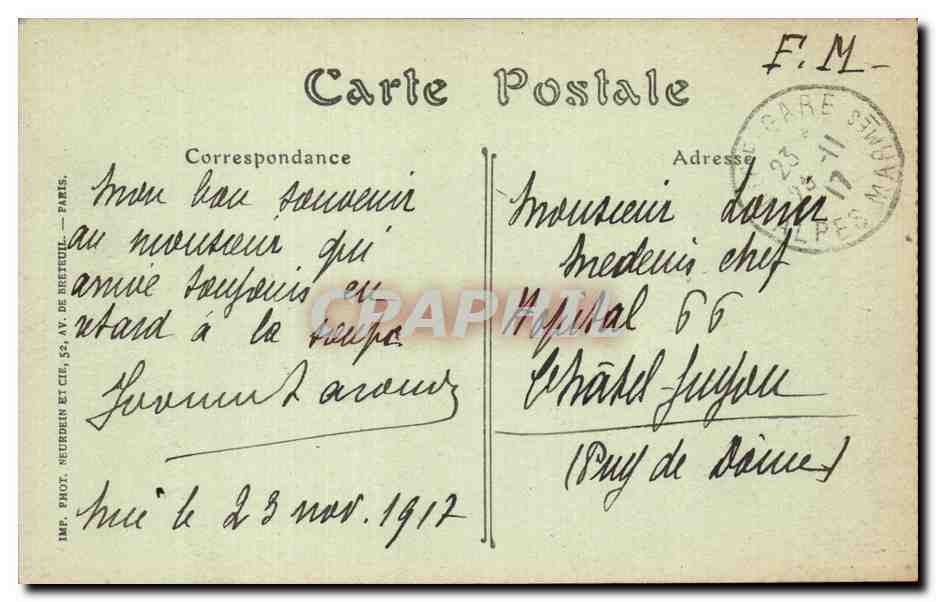 F.M-
Carte Postale
GARE
ALPES MARMES
23 -11
17
Correspondance
Adresse
Mon bon souvenir
au monsieur qui
arrive toujours en
retard à la soupe
Nice le 23 nov. 1917
Monsieur
Medecin chef
Hopital 66
Châtel-Guyon
(Puy de Dôme)
IMP. PHOT. NEURDEIN ET CIE, 52, AV. DE BRETEUIL. — PARIS.
CRAPHIL